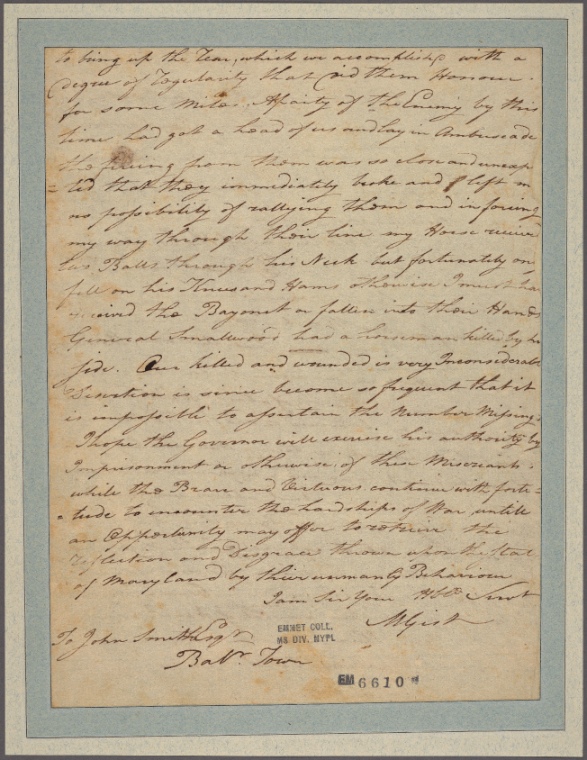 to bring up the Rear, which we accomplish'd with a
degree of Regularity that did them Honour
for some Miles. A party of the Enemy by this
time had got a head of us and lay in Ambuscade
the fireing from them was so close and unexp
=ted that they immediately broke and left m
no possibility of rallying them and in forcing
my way through their line my Horse receive
two Balls through his Neck but fortunately on
fell on his Knees and Hams otherwise I must ha
received the Bayonet or fallen into their Hands
General Smallwood had a horseman killed by his
side. Our killed and wounded is very Inconsiderable
Desertion is since become so frequent that it
is impossible to assertain the Number Missing.
I hope the Governor will exercise his authority by
Imprisonment or otherwise of these Miscriants.
while the Brave and Virtuous continue with forti=
=tude to encounter the hardships of War untill
an Opportunity may offer to retrieve the
Reflection and Disgrace thrown upon the Stat
of Maryland by thier unmanly Behaviour
I am Sir Your Hble Servt
MGist
To John Smith Esqr
Baltr. Town
EMMET COLL.
MS DIV. NYPL
EM 6610